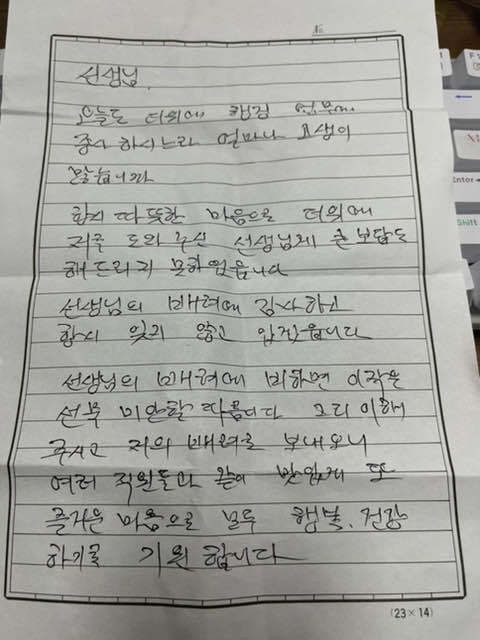 No
선생님.
오늘도 더위에 행정 업무에
종사 하시느라 얼마나 고생이
많습니까
항시 따뜻한 마음으로 더위에
저를 도와 주신 선생님께 큰 보답도
해드리지 못하였읍니다
선생님의 배려에 감사하고
항시 잊지 않고 있겠읍니다
선생님의 배려에 비하면 이작은
선물 미안할 따름이다 그리 이해
주시고 저의 배려를 보내오니
여러 직원들과 같이 맛있게 또
즐거운 마음으로 모두 행복, 건강
하기를 기원 합니다
(23×14)
Enter
Shift